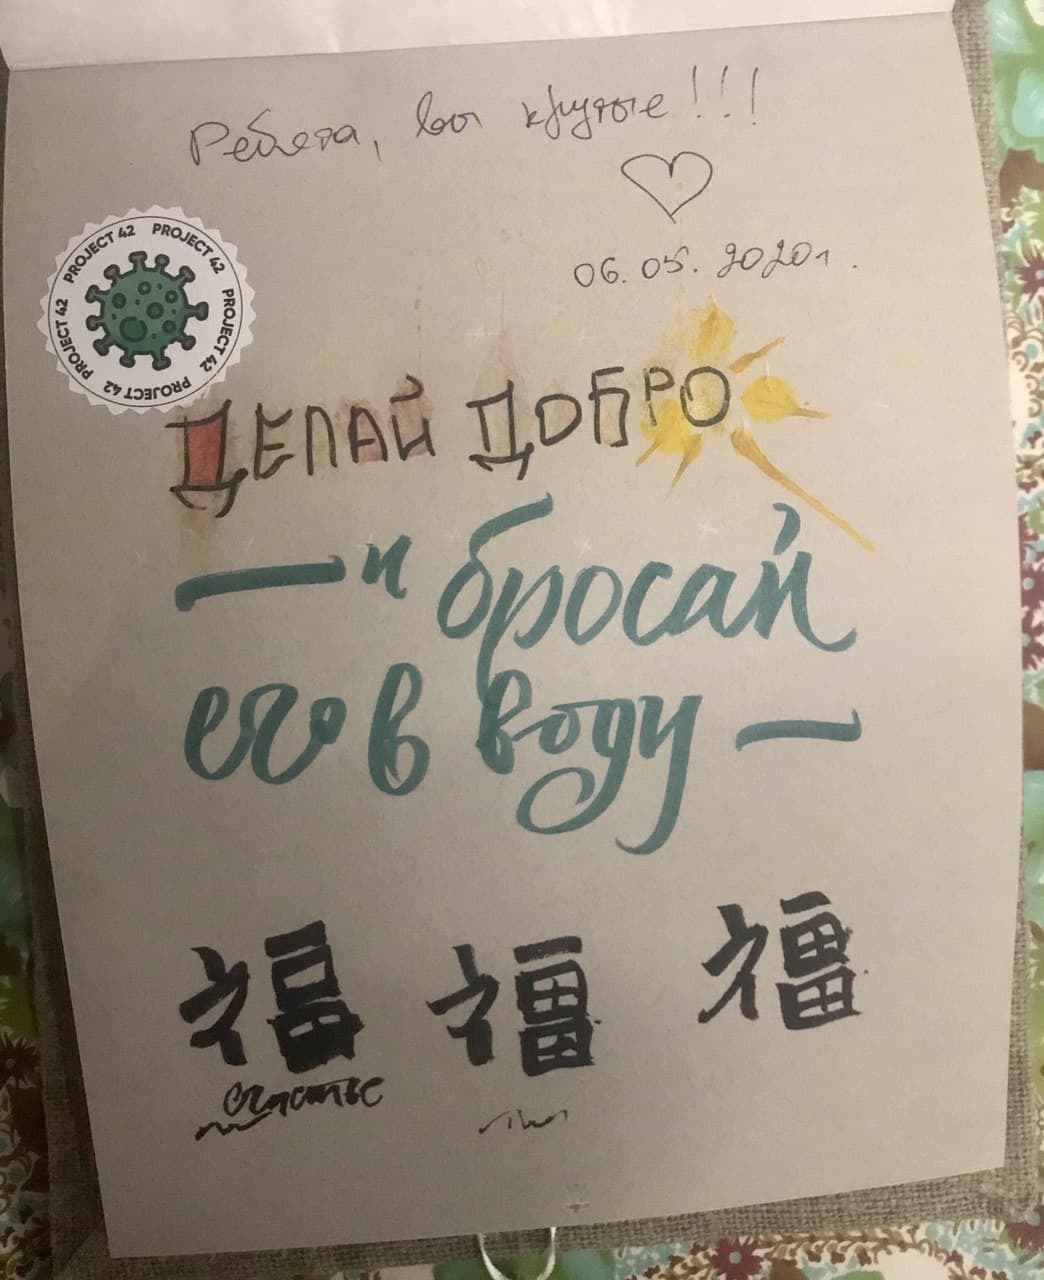 Ребята, вы крутые!!!
06.05.2020г.
PROJECT 42 PROJECT 42 PROJECT 42 PROJECT 42 PROJECT 42
ДЕЛАЙ ДОБРО
— и бросай
его в воду —
福 福 福
счастье